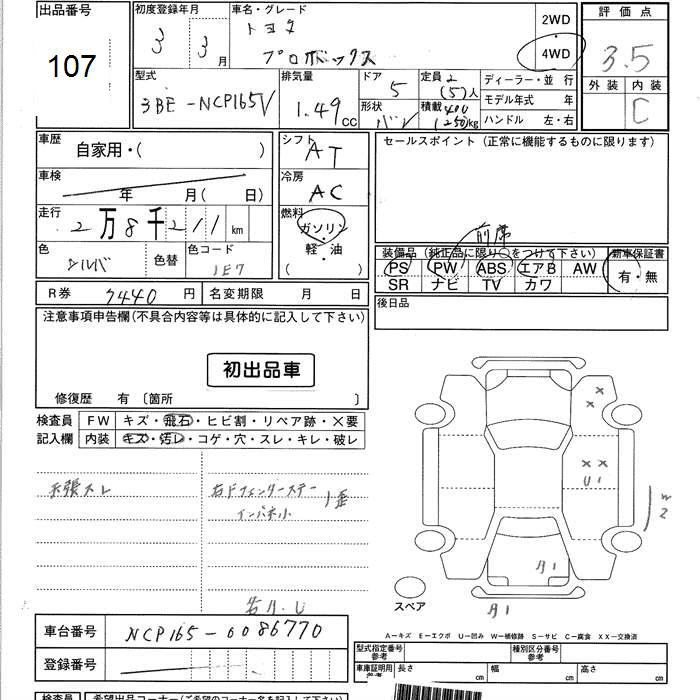 出品番号
107
初度登録年月
3 3月
車名・グレード
トヨタ
プロボックス
2WD
4WD
評価点
3.5
外装 内装
C
型式
3BE-NCP165V
排気量
1.49cc
ドア
5
形状
バン
定員 2
(5)人
積載 400
(250)kg
ディーラー・並 行
モデル年式 年
ハンドル 左・右
車歴
自家用・( )
シフト
AT
セールスポイント(正常に機能するものに限ります)
車検
年 月( 日)
冷房
AC
走行
2万8千211km
燃料
ガソリン
軽・油
( )
色
シルバ
色替
色コード
1E7
前席
装備品(純正品に限り○をつけて下さい)
PS PW ABS エアB AW
SR ナビ TV カワ
新車保証書
有・無
R券 7440円
名変期限 月 日
後日品
注意事項申告欄(不具合内容等は具体的に記入して下さい)
初出品車
修復歴 有〔箇所 〕
検査員
記入欄
FW キズ・飛石・ヒビ割・リペア跡・×要
内装 キズ・汚レ・コゲ・穴・スレ・キレ・破レ
右Fフェンダーステー
インパネ小
小歪
X
X
X X
U1
W2
スペア
A-キズ E-エクボ U-凹み W-補修跡 S-サビ C-腐食 XX-交換済
車台番号 NCP165-0086770
登録番号
型式指定番号
参考
種別区分番号
参考
車庫証明用
参考
長さ cm 幅 cm 高さ cm
検査員
希望出品コーナー(ご希望のコーナー名を記入